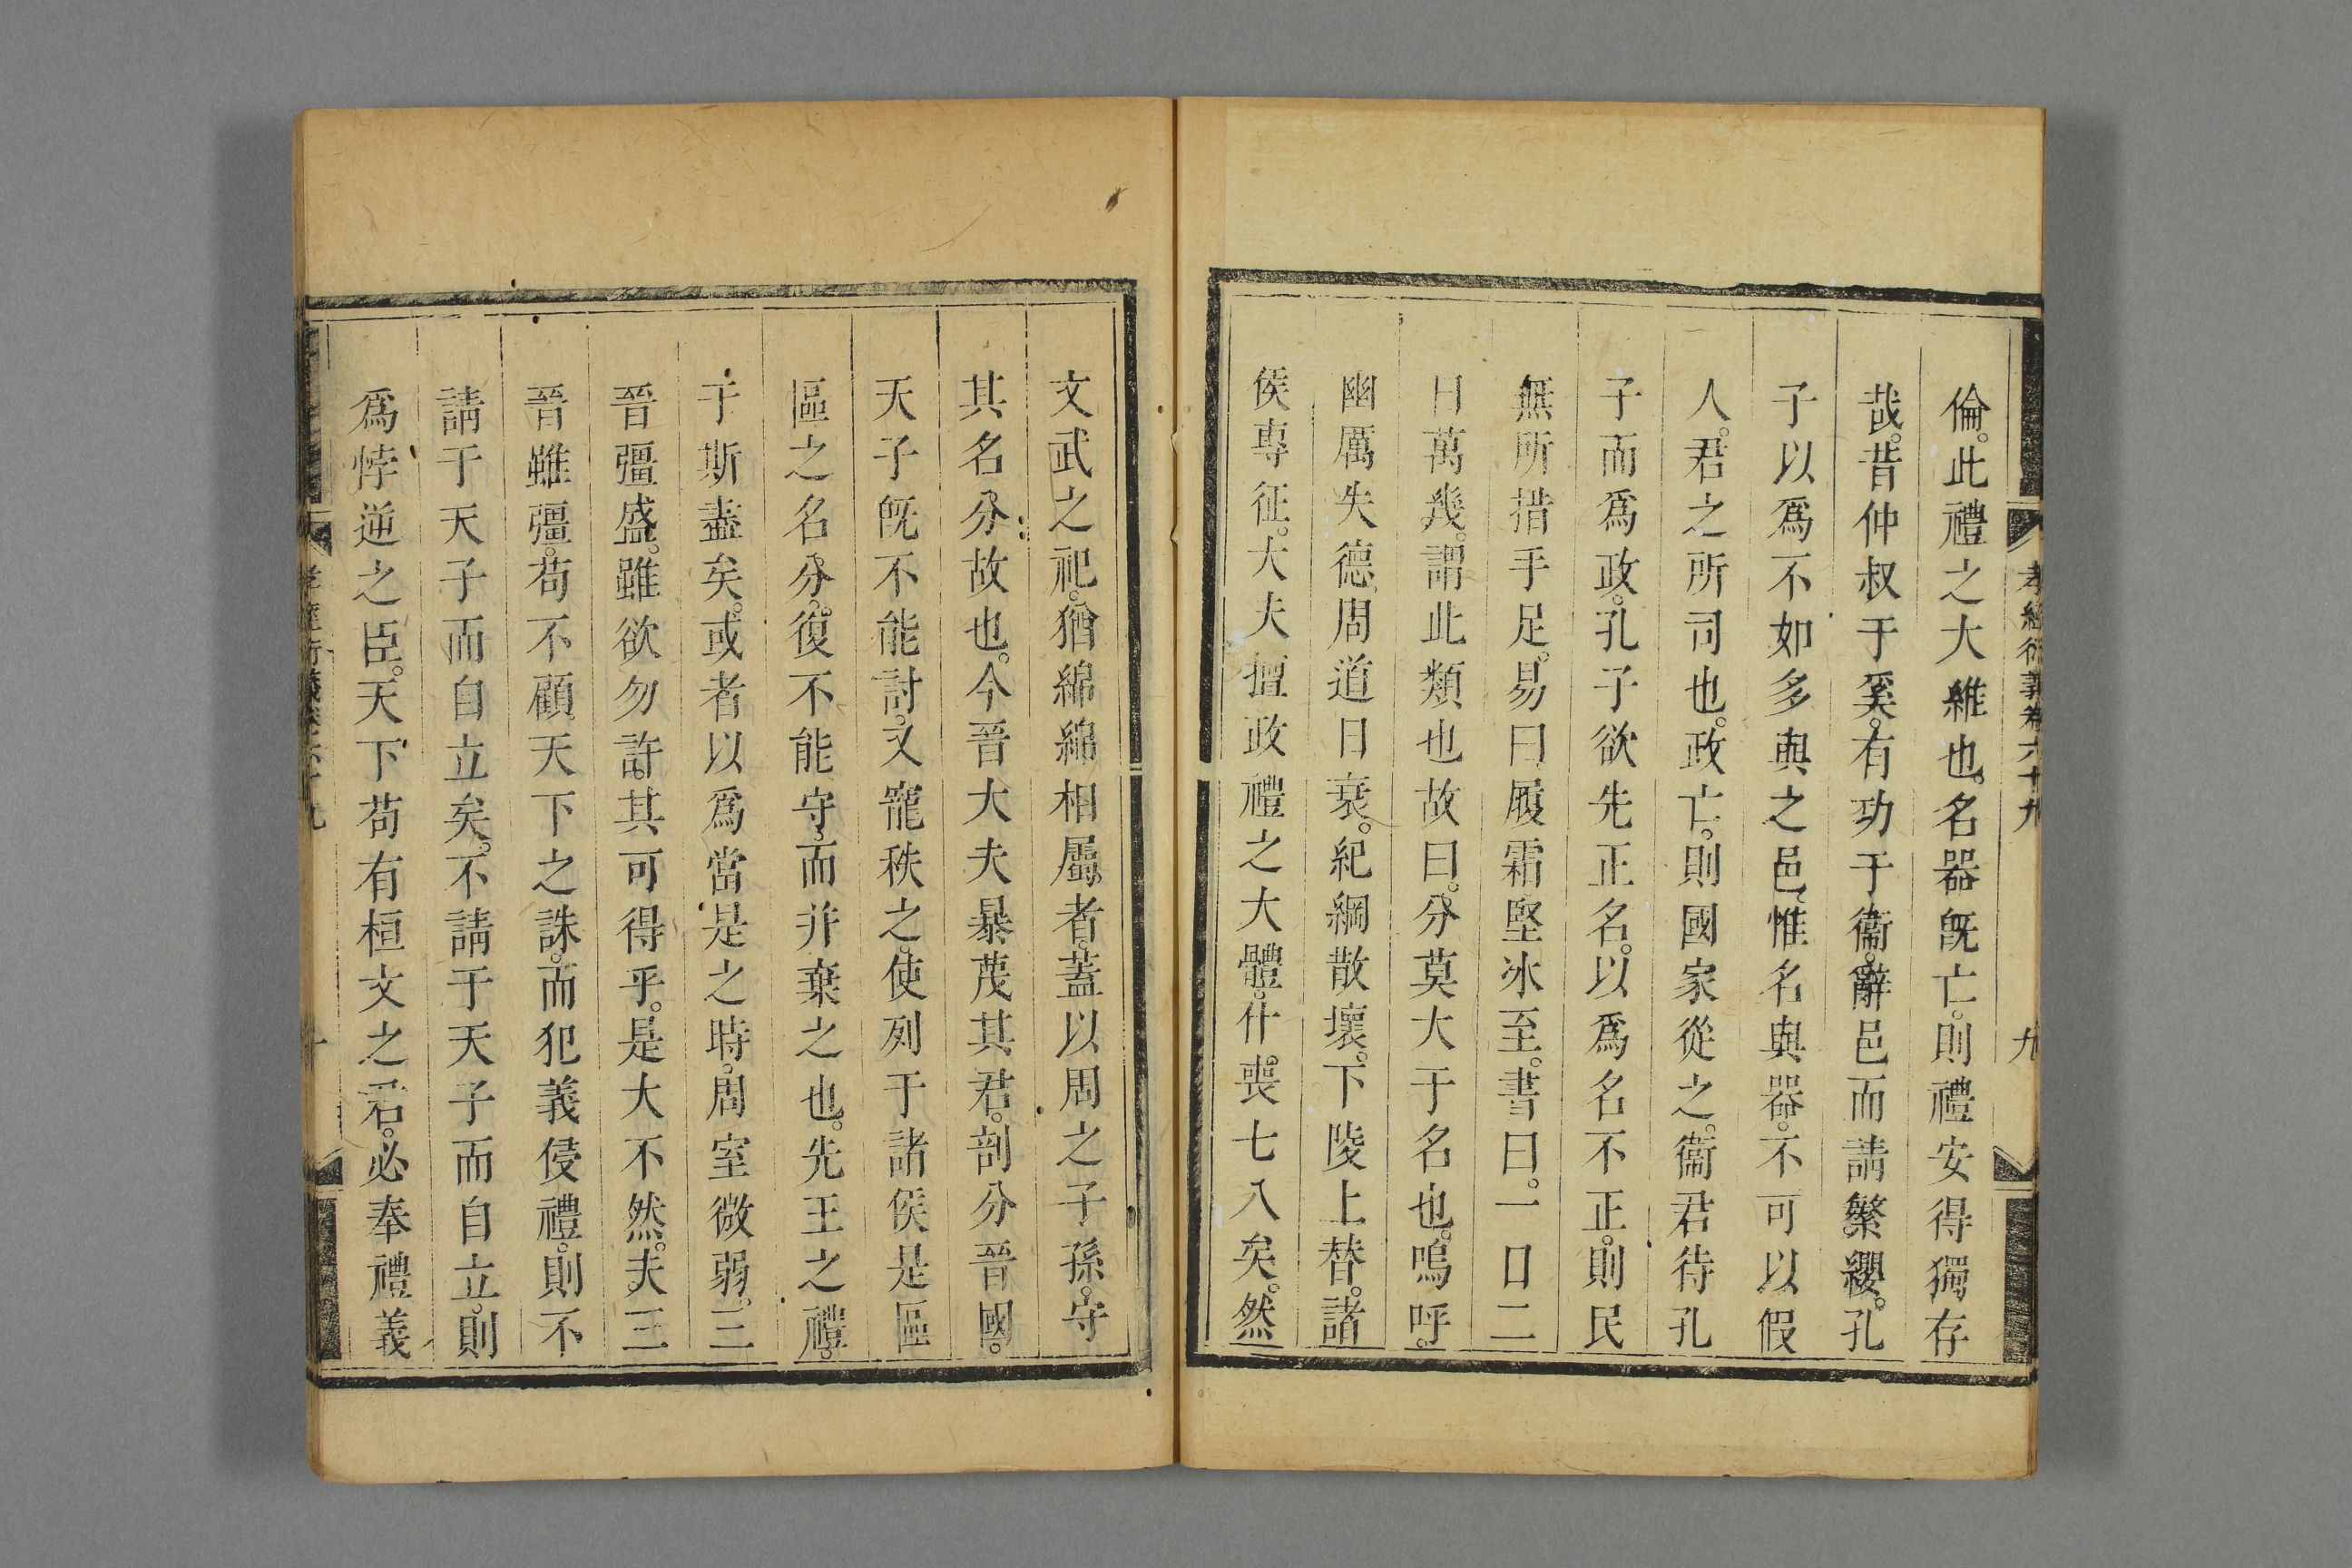 孝經衍義卷六十九
九
倫。此禮之大雖也。名器旣亡。則禮安得獨存
哉。昔仲叔于奚。有功于衞。辭邑而請繁纓。孔
子以爲不如多與之邑。惟名與器。不可以假
人。君之所司也。政亡。則國家從之。衞君待孔
子而爲政。孔子欲先正名。以爲名不正。則民
無所措手足。易曰履霜堅冰至。書曰。一日二
日萬幾。謂此類也故曰。分莫大于名也。嗚呼。
幽厲失德、周道日衰。紀綱散壞。下陵上替。諸
侯專征。大夫擅政禮之大體。什喪七八矣。然
文武之祀。猶綿綿相屬者。蓋以周之子孫。守
其名分故也。今晉大夫暴蔑其君。剖分晉國。
天子旣不能討。又寵秩之。使列于諸侯是區
區之名分。復不能守。而并棄之也。先王之禮。
于斯盡矣。或者以爲當是之時。周室微弱。三
晉彊盛。雖欲勿許。其可得乎。是大不然。夫三
晉雖彊。苟不顧天下之誅。而犯義侵禮。則不
請于天子而自立矣。不請于天子而自立。則
爲悖逆之臣。天下苟有桓文之君。必奉禮義